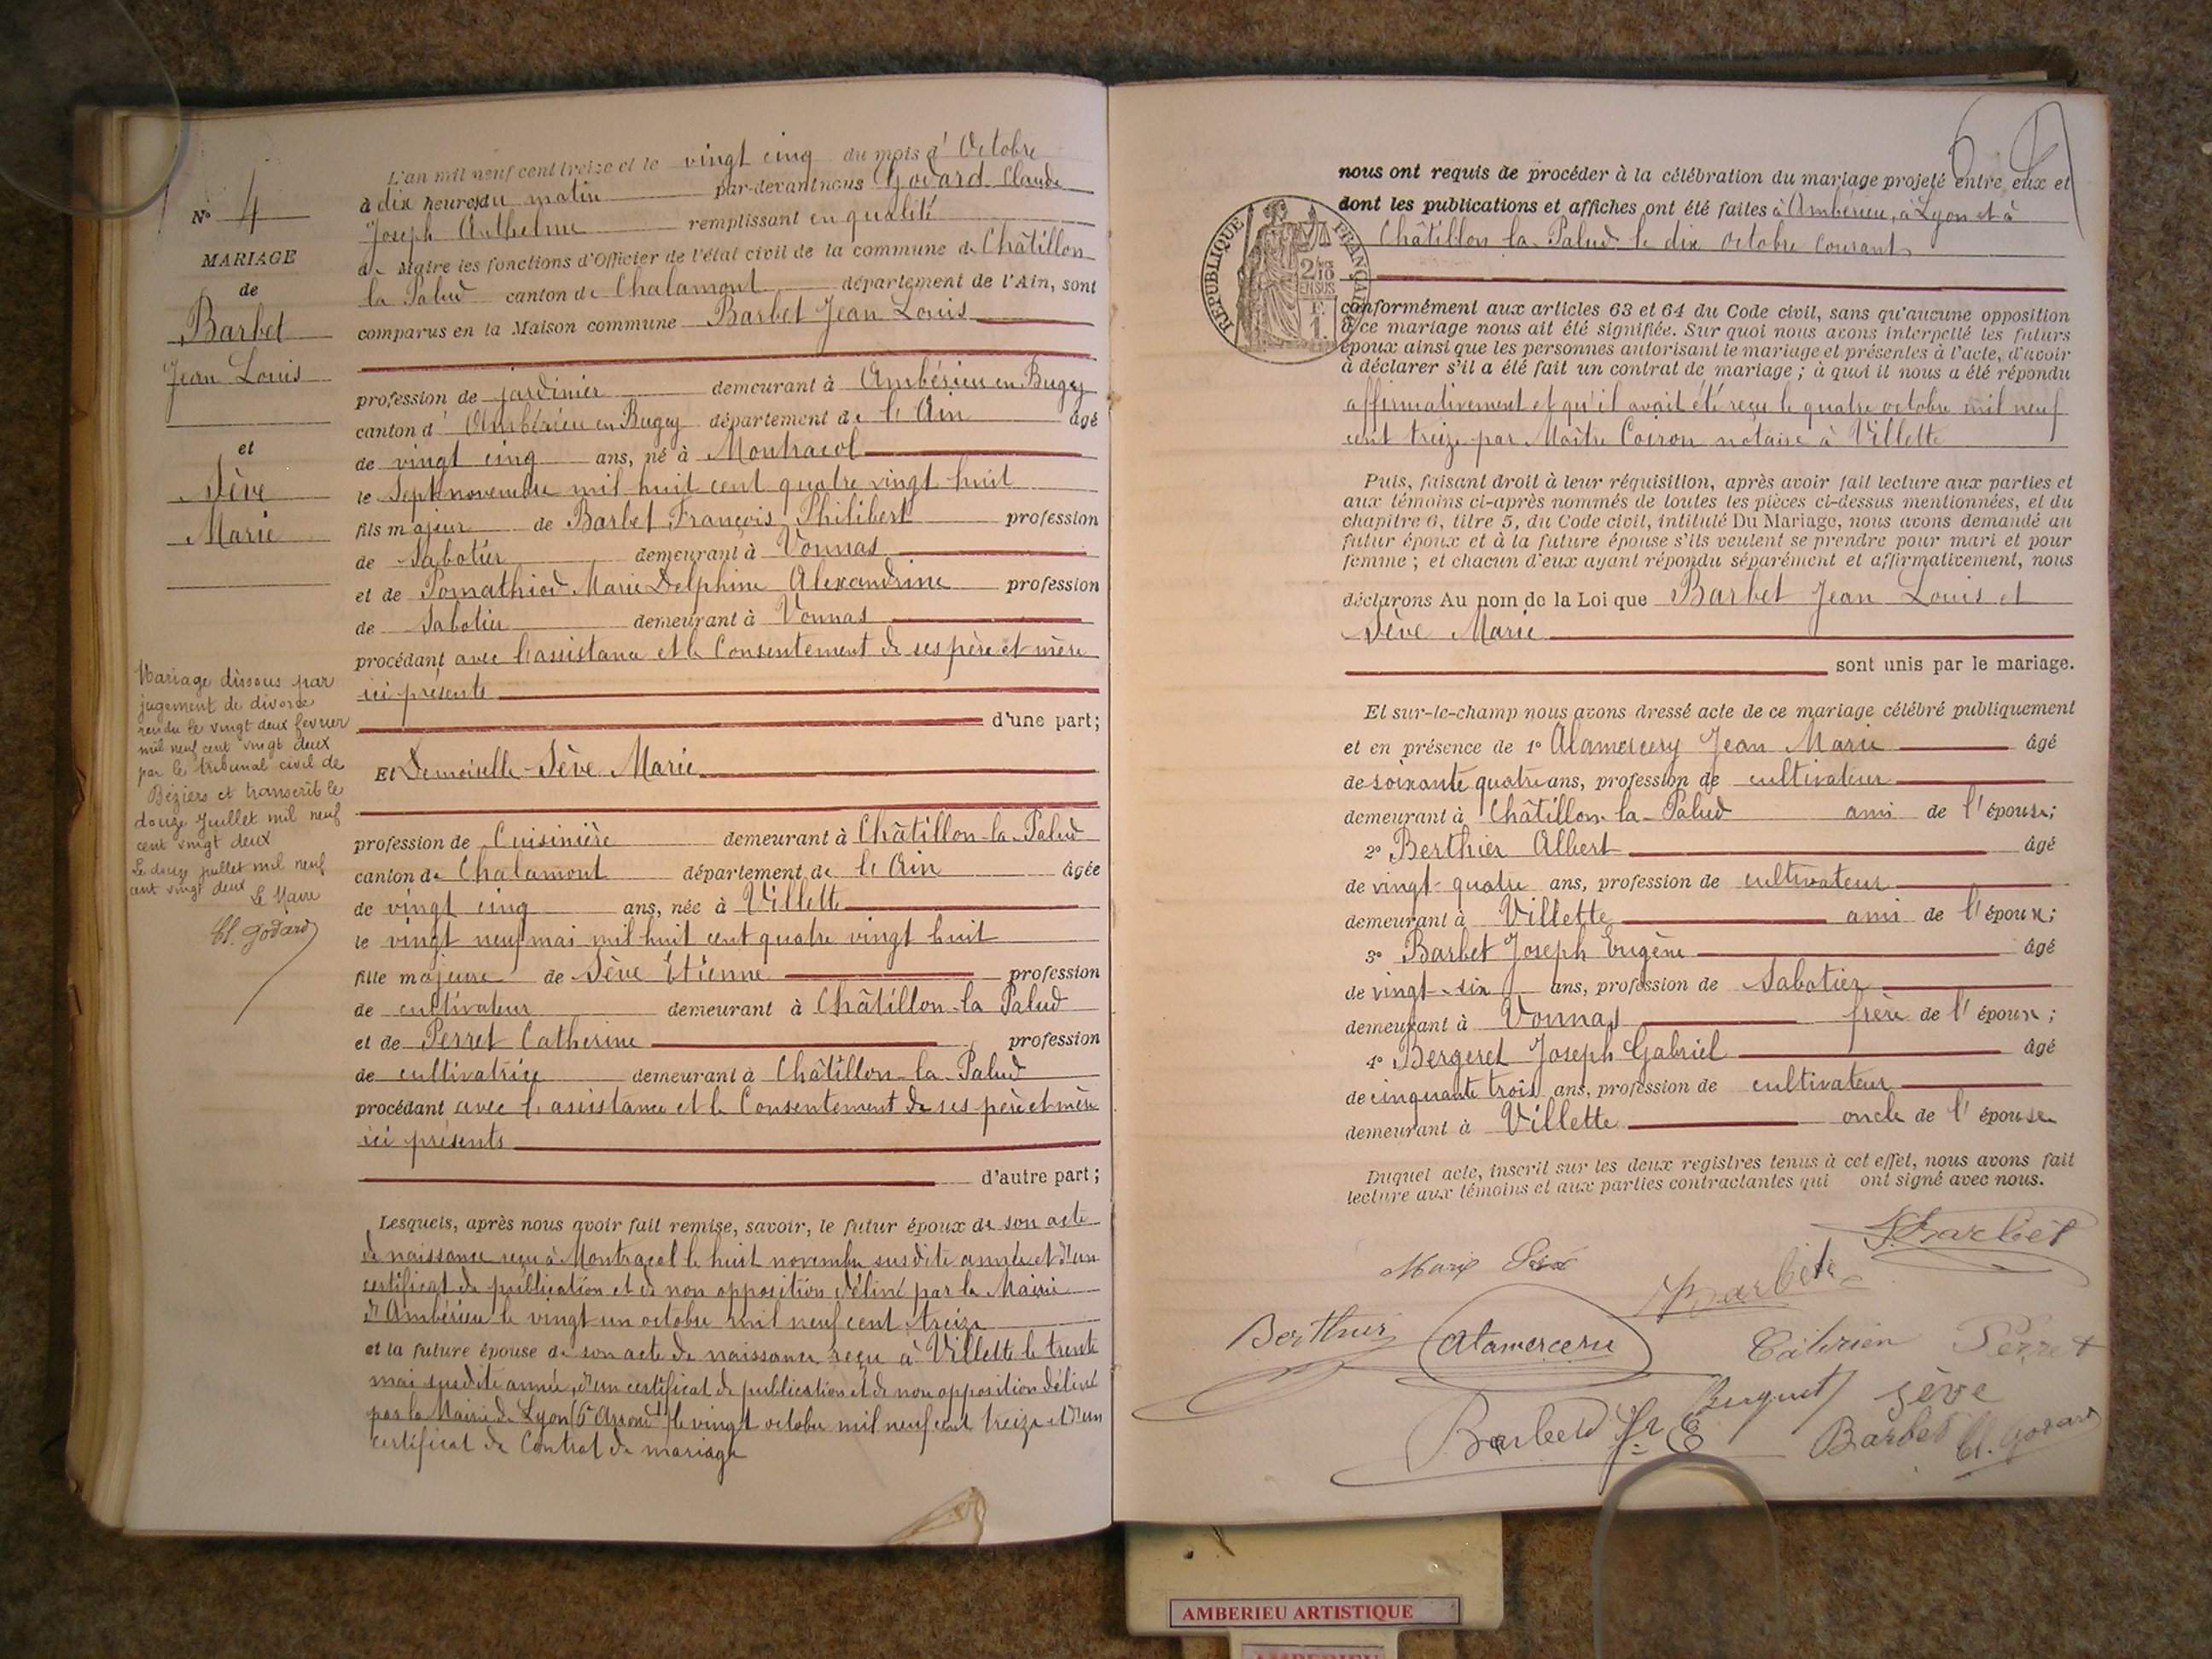 N° 4
MARIAGE
de
Barbet
Jean Louis
et
Sève
Marie
Mariage dissous par
jugement de divorce
rendu le vingt deux fevrier
mil neuf cent vingt deux
par le tribunal civil de
Béziers et transcrit le
douze Juillet mil neuf
cent vingt deux
Le douze juillet mil neuf
cent vingt deux Le Maire
Cl. Godard
L'an mil neuf cent treize et le vingt cinq du mois d' Octobre
à dix heures du matin par-devant nous Godard Claude
Joseph Anthelme remplissant en qualité
de Maire les fonctions d'Officier de l'état civil de la commune de Châtillon
la Palud canton de Chalamont département de l'Ain, sont
comparus en la Maison commune Barbet Jean Louis
profession de jardinier demeurant à Ambérieu en Bugey
canton d' Ambérieu en Bugey département de l'Ain âgé
de vingt cinq ans, né à Montracol
le Sept novembre mil huit cent quatre vingt huit
fils majeur de Barbet François Philibert profession
de Sabotier demeurant à Vonnas
et de Pomathiod Marie Delphine Alexandrine profession
de Sabotier demeurant à Vonnas
procédant avec l'assistance et le Consentement de ses père et mère
ici présents
d'une part;
Et Demoiselle Sève Marie
profession de Cuisinière demeurant à Châtillon-la-Palud
canton de Chalamont département de l'Ain âgée
de vingt cinq ans, née à Villette
le vingt neuf mai mil huit cent quatre vingt huit
fille majeure de Sève Étienne profession
de cultivateur demeurant à Châtillon-la Palud
et de Perret Catherine profession
de cultivatrice demeurant à Châtillon-la-Palud
procédant avec l'assistance et le Consentement de ses père et mère
ici présents
d'autre part;
Lesquels, après nous avoir fait remise, savoir, le futur époux de son acte
de naissance reçu à Montracol le huit novembre susdite année et d'un
certificat de publication et de non opposition délivré par la Mairie
d'Ambérieu le vingt un octobre mil neuf cent treize
et la future épouse de son acte de naissance reçu à Villette le trente
mai susdite année, d'un certificat de publication et de non opposition délivré
par la Mairie de Lyon (6e Arrondt) le vingt octobre mil neuf cent treize et d'un
certificat de Contrat de mariage
nous ont requis de procéder à la célébration du mariage projeté entre eux et
dont les publications et affiches ont été faites à Ambérieu, à Lyon et à
Châtillon la Palud le dix octobre courant
REPUBLIQUE FRANÇAISE
2/10
EN SUS
F.
1.
conformément aux articles 63 et 64 du Code civil, sans qu'aucune opposition
à ce mariage nous ait été signifiée. Sur quoi nous avons interpellé les futurs
époux ainsi que les personnes autorisant le mariage et présentes à l'acte, d'avoir
à déclarer s'il a été fait un contrat de mariage; à quoi il nous a été répondu
affirmativement et qu'il avait été reçu le quatre octobre mil neuf
cent treize par Maître Coiron notaire à Villette
Puis, faisant droit à leur réquisition, après avoir fait lecture aux parties et
aux témoins ci-après nommés de toutes les pièces ci-dessus mentionnées, et du
chapitre 6, titre 5, du Code civil, intitulé Du Mariage, nous avons demandé au
futur époux et à la future épouse s'ils veulent se prendre pour mari et pour
femme; et chacun d'eux ayant répondu séparément et affirmativement, nous
déclarons Au nom de la Loi que Barbet Jean Louis et
Sève Marie
sont unis par le mariage.
Et sur-le-champ nous avons dressé acte de ce mariage célébré publiquement
et en présence de 1° Alamercery Jean Marie âgé
de soixante quatre ans, profession de cultivateur
demeurant à Châtillon-la-Palud ami de l'épouse;
2° Berthier Albert âgé
de vingt-quatre ans, profession de cultivateur
demeurant à Villette ami de l'époux;
3° Barbet Joseph Eugène âgé
de vingt-six ans, profession de Sabotier
demeurant à Vonnas frère de l'époux;
4° Bergeret Joseph Gabriel âgé
de cinquante trois ans, profession de cultivateur
demeurant à Villette oncle de l'épouse
Duquel acte, inscrit sur les deux registres tenus à cet effet, nous avons fait
lecture aux témoins et aux parties contractantes qui ont signé avec nous.
Barbet
Marie
Barbet
Berthier Alamercery Perret
Sève
Barbet Barbet Cl. Godard
AMBERIEU ARTISTIQUE
AMBERIEU